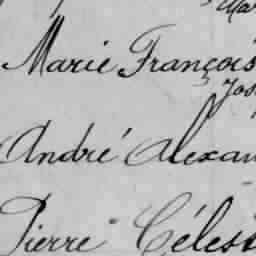 Mar
Marie François
Jos
André Alexan
Pierre Célest